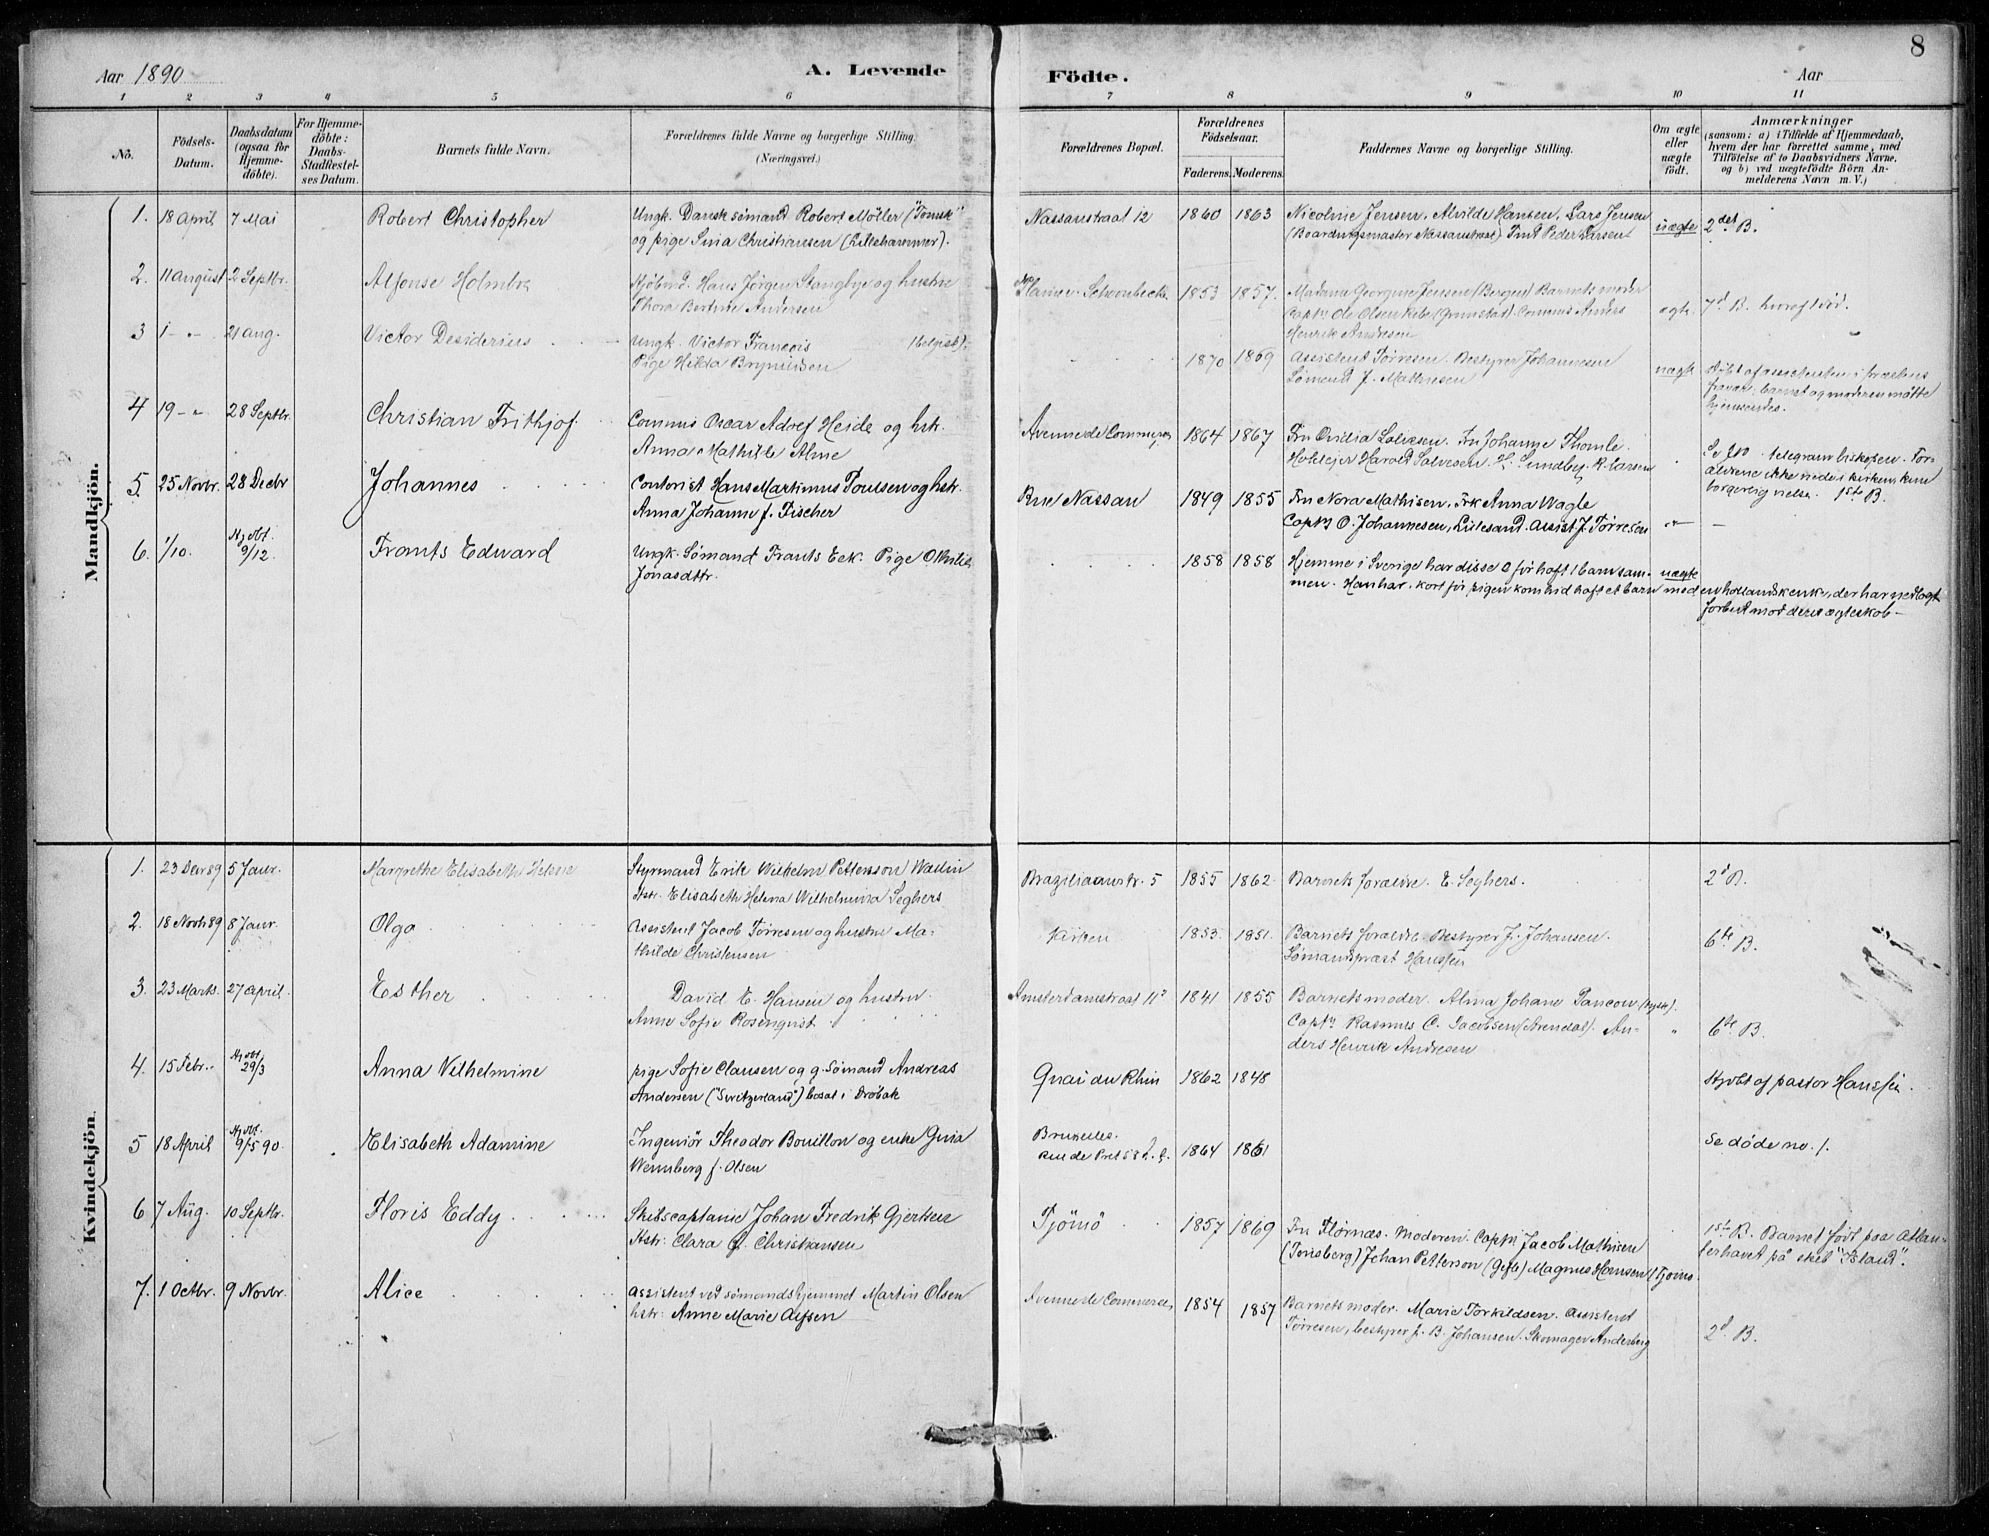 8
Aar 1890
A. Levende
Födte.
Aar
1 2 3 4 5 6 7 8 9 10 11
No.
Födsels-
Datum.
Daabsdatum
(ogsaa for
Hjemme-
döbte).
For Hjemme-
döbte:
Daabs-
Stadfæstel-
ses Datum.
Barnets fulde Navn.
Forældrenes fulde Navne og borgerlige Stilling.
(Næringsvei.)
Forældrenes Bopæl.
Forældrenes
Födselsaar.
Faderens. Moderens.
Faddernes Navne og borgerlige Stilling.
Om ægte
eller
uægte
födt.
Anmærkninger
(saasom: a) i Tilfælde af Hjemmedaab,
hvem der har forrettet samme, med
Tilföielse af to Daabsvidners Navne.
og b) ved uægtefödte Börn An-
melderens Navn m. V.)
Mandkjön.
1. 18 April 7 Mai Robert Christopher
Ungk. Dansk sömand Robert Möller ("Tomsk"
og pige Christiansen (Lillehammer).
Nassaustraat 12 1860 1863
Nicoline Jensen, Alvilde Hansen, Lars Jensen
(Boardingsmaster Nassaustraat) Peder Larsen
uægte 2det B.
2. 11 August 2 Septbr. Alfonse
Hans Jörgen Stangbye og hustru
Thora Andersen
1853 1857.
Madame Georgine Jensen (Bergen) Barnets moder
Capt. Olsen (Grimstad). Commis Anders
Henrik Andresen
ægte. 7d B. død.
3 21 Aug. Victor Desiderius
Ungk. Victor François (belgisk).
Pige Hilda
1870 1869
Assistent Törresen. Bestyrer Johannesen
Sömand J. Mathiesen
uægte döbt af assistenten i præstens
fravær, barnet og moderen måtte
hjemsendes.
4 19 – „ 28 Septbr. Christian Frithjof
Commis Oscar Adolf Heide og hstr.
Anna Mathilde Alme
Avenue de Commerce 1864 1867
Fru Ovidia Salvesen. Fru Johanne Thomle.
Harald Salvesen. H. Sundby. R. Larsen
telegram biskopen. For-
ældrene ikke viede i kirken, kun
borgerlig vielse. 1ste B.
5. 25 Novbr. 28 Decbr Johannes
Contorist Hans Martinus Poulsen og hstr.
Anna Johanne f. Fischer
Rue Nassau 1849 1855
Fru Nora Mathisen, Frk Anna Wagle
Captn O. Johannesen, Lillesand. Assist J. Törresen
„ –
6. 1/10. Hj.dbt. 9/12 Frants Edward
Ungk. Sömand Frants Eek. Pige
Jonasdttr.
1858 1858
Hjemme i Sverige har disse før haft 1 barn sam-
men. Han har kort før pigen kom hid haft et barn med en hollandsk enke, der har nedlagt
forbud mod deres ægteskab –
uægte
Kvindekjön.
1. 23 Decr 89 5 Janr. Margrethe Elisabeth Helene
Styrmand Erik Wilhelm Pettersson Wallin
Hstr. Elisabeth Helena Wilhelmina Seghers
Braziliaanstr. 5 1855 1862
Barnets forældre. E. Seghers.
2d B.
2. 18 Novb 89 8 Janr. Olga
Assistent Jacob Törresen og hustru Ma-
thilde Christensen
Kirken 1853. 1851.
Barnets forældre Bestyrer J. Johansen.
Sömandspræst Hanssen
6te B.
3. 23 Marts. 27 April. Esther
David E. Hansen og hustru.
Anne Sofie Rosenqvist.
Amsterdamstraat 11 1841 1855
Barnets moder. Alma Johane
Captn Rasmus C. Jacobsen (Arendal). An-
ders Henrik Andresen
„ 6te B.
4. 15 Febr. Hj.dbt. 29/3 Anna Vilhelmine
pige Sofie Clausen og g. Sömand Andreas
Andersen ("Switzerland") bosat i Dröbak
Quai du Rhin 1862 1848
Hj.dbt af pastor Hanssen.
5 18 April Hj.dbt. 9/5 90 Elisabeth Adamine
Ingeniör Theodor Bouillon og enke
Wennberg f. Olsen
Bruxelles.
Rue de 1864 1861
Se døde no. 1.
6 7 Aug. 10 Septbr. Floris Eddy
Skibscaptanie Johan Fredrik Gjertsen
Hstr: Clara Christiansen
Tjömö 1857 1869
Fru Flörnæs. Moderen. Captn Jacob Mathisen
(Tönsberg) Johan Petterson (Gefle) Magnus Hansen (Tjömö.
1ste B. Barnet født paa Atlan-
terhavet på skib "Island".
7. 1 Octbr. 9 Novbr. Alice
assistent ved sömandshjemmet Martin Olsen
hstr: Anne Marie
Avenue de Commerce 1854 1857
Barnets moder. Marie Torkildsen. Assistent
Törresen, bestyrer J. B. Johansen. Skomager Anderberg
2d. B.